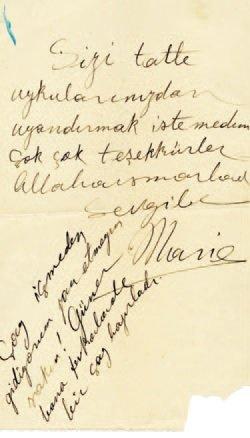 Sizi tatlı
uykularınızdan
uyandırmak istemedim
çok çok teşekkürler
Allahaısmarladık
Sevgiler
Marie
Çay içmeden
gidiyorum zan etmeyin
sakın! Güner
bana fevkalade
bir çay hazırladı.